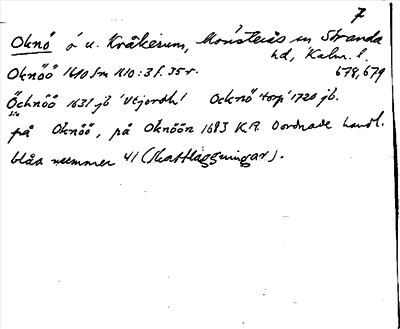 7
Oknö ö u. Kråkerum, Mönsterås sn Stranda
hd, Kalm. l.
Oknöö 1610 Sm 1610:3 f. 35 r. 678, 679
Öchnöö 1631 jb 'Utjordh' Ocknö torp 1720 jb.
på Oknöö, på Oknöön 1683 K.A. Oordnade handl.
blåa nummer 41 (Skattläggningar).